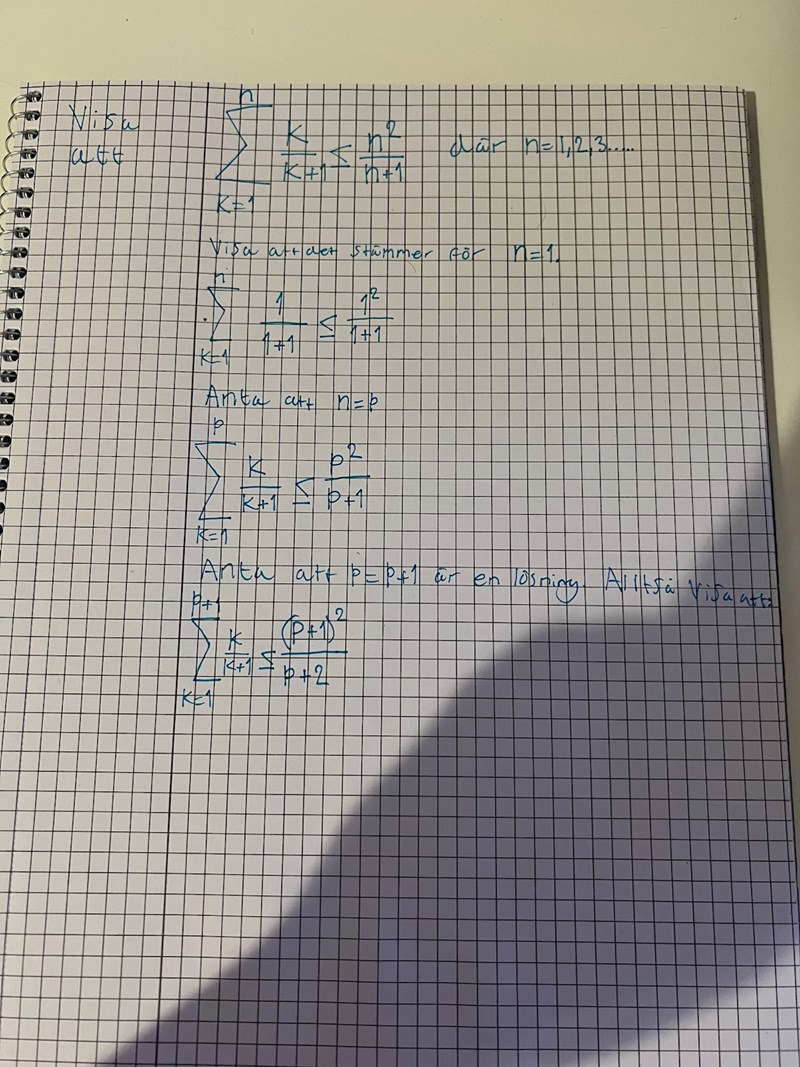 Visa att $\sum_{k=1}^{n} \frac{k}{k+1} \leq \frac{n^2}{n+1}$ där n=1,2,3.....
Visa att det stämmer för n=1.
$\sum_{k=1}^{n} \frac{1}{1+1} \leq \frac{1^2}{1+1}$
Anta att n=p
$\sum_{k=1}^{p} \frac{k}{k+1} \leq \frac{p^2}{p+1}$
Anta att p=p+1 är en lösning. Alltså visa att:
$\sum_{k=1}^{p+1} \frac{k}{k+1} \leq \frac{(p+1)^2}{p+2}$